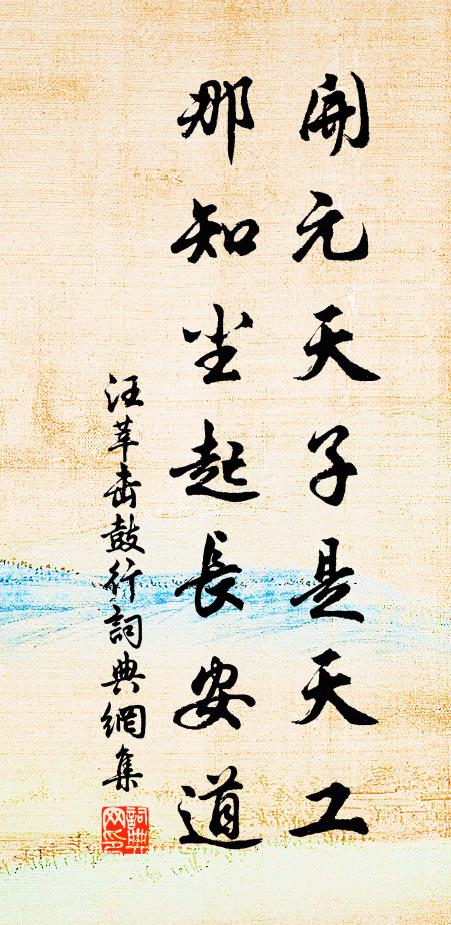 開元天子是天工
那知尘起長安道
汪莘击鼓行詞典網集
詞典网印